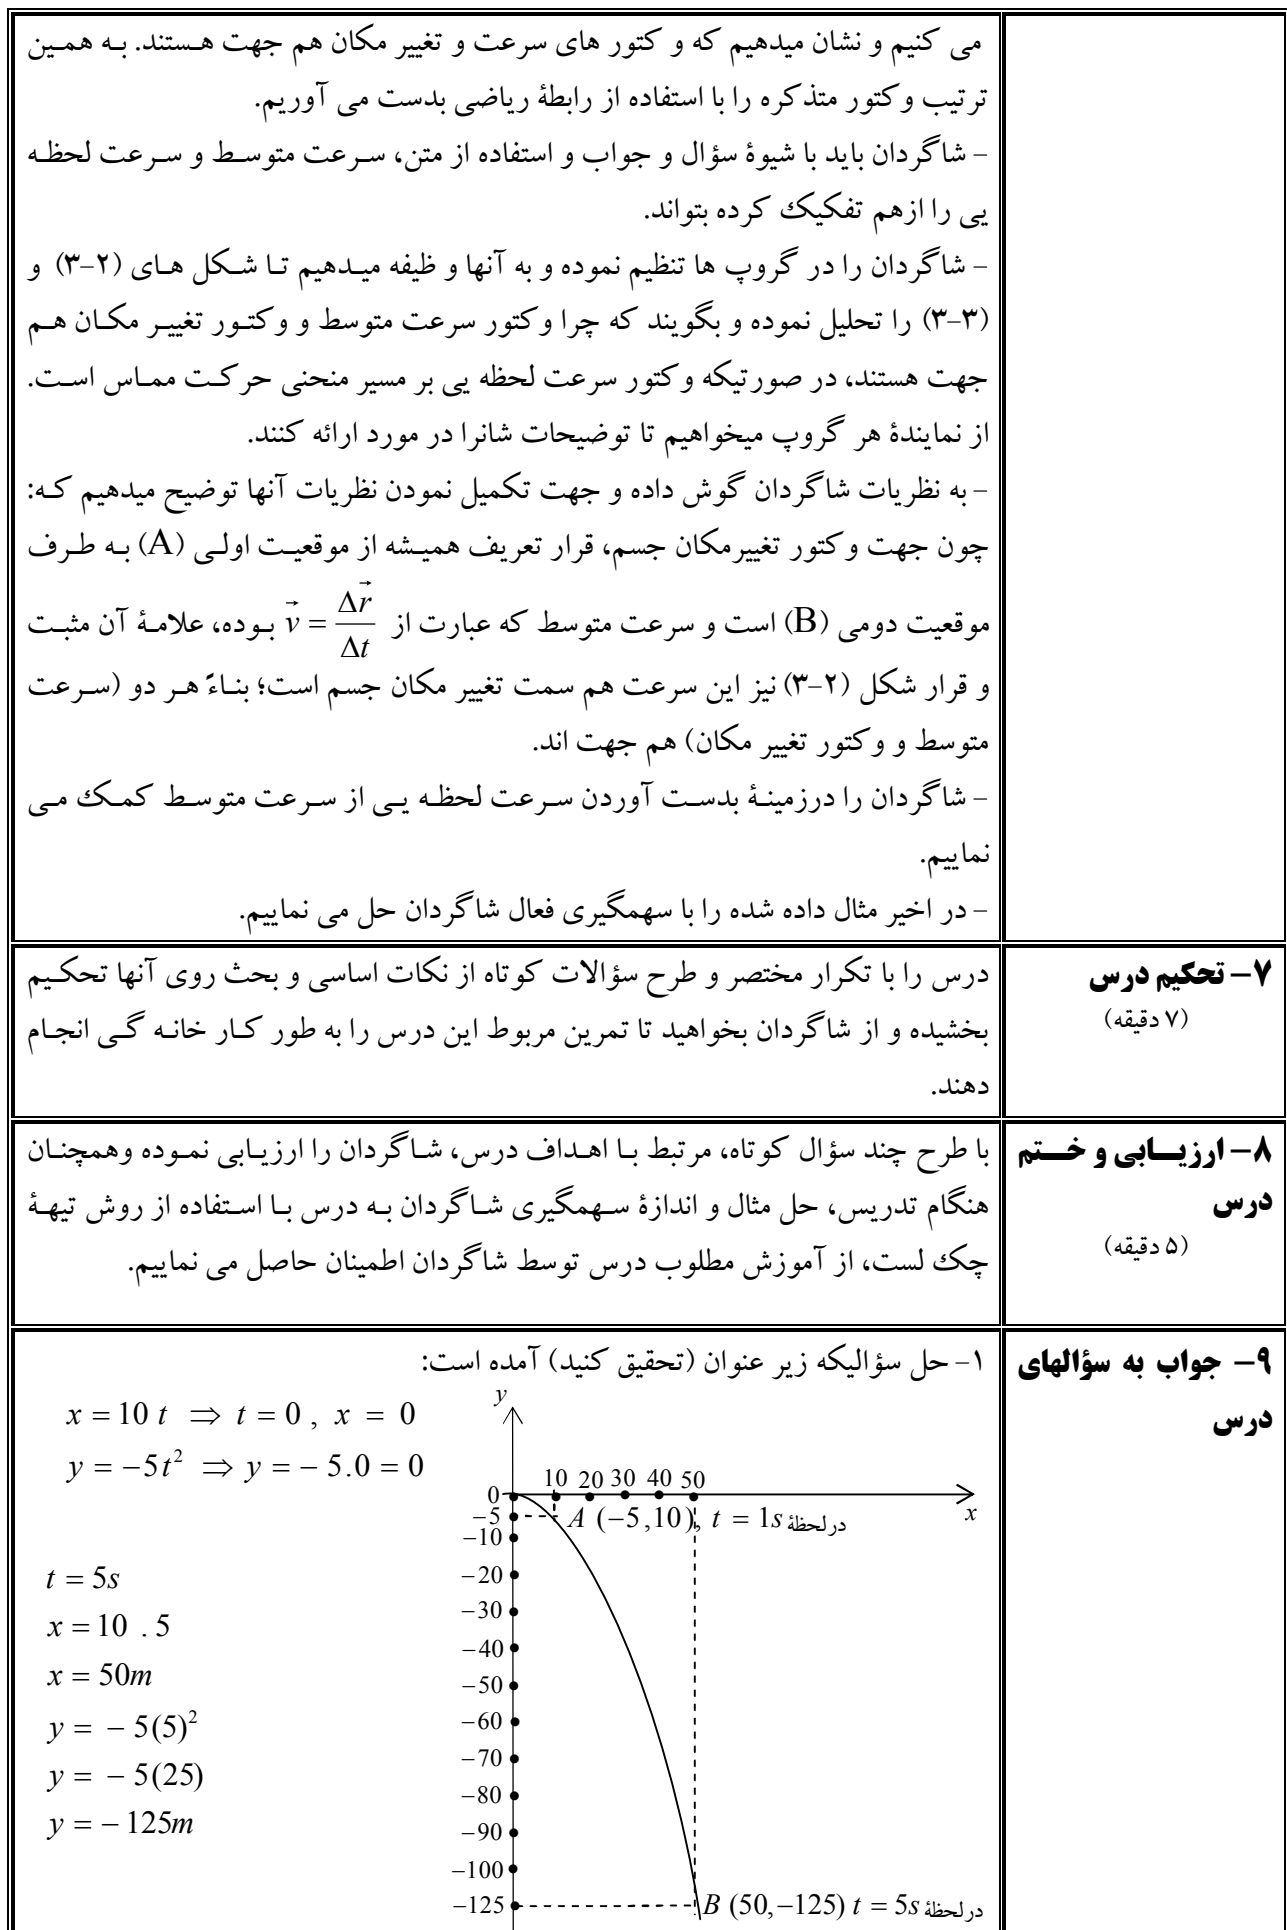 می کنیم و نشان میدهیم که و کتور های سرعت و تغییر مکان هم جهت هستند. به همین
ترتیب وکتور متذکره را با استفاده از رابطۀ ریاضی بدست می آوریم.
- شاگردان باید با شیوۀ سؤال و جواب و استفاده از متن، سرعت متوسط و سرعت لحظه
یی را ازهم تفکیک کرده بتواند.
- شاگردان را در گروپ ها تنظیم نموده و به آنها و ظیفه میدهیم تا شکل های (۲-۳) و
(۳-۳) را تحلیل نموده و بگویند که چرا وکتور سرعت متوسط و وکتور تغییر مکان هم
جهت هستند، در صورتیکه وکتور سرعت لحظه یی بر مسیر منحنی حرکت مماس است.
از نمایندۀ هر گروپ میخواهیم تا توضیحات شانرا در مورد ارائه کنند.
- به نظریات شاگردان گوش داده و جهت تکمیل نمودن نظریات آنها توضیح میدهیم که:
چون جهت وکتور تغییرمکان جسم، قرار تعریف همیشه از موقعیت اولی (A) به طرف
موقعیت دومی (B) است و سرعت متوسط که عبارت از $\vec{v} = \frac{\Delta \vec{r}}{\Delta t}$ بوده، علامۀ آن مثبت
و قرار شکل (۲-۳) نیز این سرعت هم سمت تغییر مکان جسم است؛ بناءً هر دو (سرعت
متوسط و وکتور تغییر مکان) هم جهت اند.
- شاگردان را درزمینۀ بدست آوردن سرعت لحظه یی از سرعت متوسط کمک می
نماییم.
- در اخیر مثال داده شده را با سهمگیری فعال شاگردان حل می نماییم.
۷- تحکیم درس
(۷ دقیقه)
درس را با تکرار مختصر و طرح سؤالات کوتاه از نکات اساسی و بحث روی آنها تحکیم
بخشیده و از شاگردان بخواهید تا تمرین مربوط این درس را به طور کار خانه گی انجام
دهند.
۸- ارزیابی و ختم
درس
(۵ دقیقه)
با طرح چند سؤال کوتاه، مرتبط با اهداف درس، شاگردان را ارزیابی نموده وهمچنان
هنگام تدریس، حل مثال و اندازۀ سهمگیری شاگردان به درس با استفاده از روش تیهۀ
چک لست، از آموزش مطلوب درس توسط شاگردان اطمینان حاصل می نماییم.
۹- جواب به سؤالهای
درس
۱- حل سؤالیکه زیر عنوان (تحقیق کنید) آمده است:
x = 10 t ⇒ t = 0 , x = 0
y = −5t² ⇒ y = − 5.0 = 0
t = 5s
x = 10 . 5
x = 50m
y = − 5(5)²
y = − 5(25)
y = − 125m
y
10 20 30 40 50
0
x
−5
A (−5,10), t = 1s درلحظۀ
−10
−20
−30
−40
−50
−60
−70
−80
−90
−100
−125
B (50,−125) t = 5s درلحظۀ